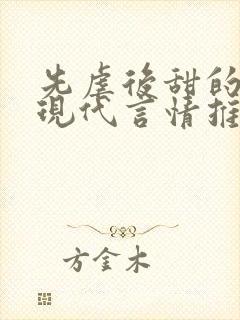 先虐後甜的
現代言情推
方金木